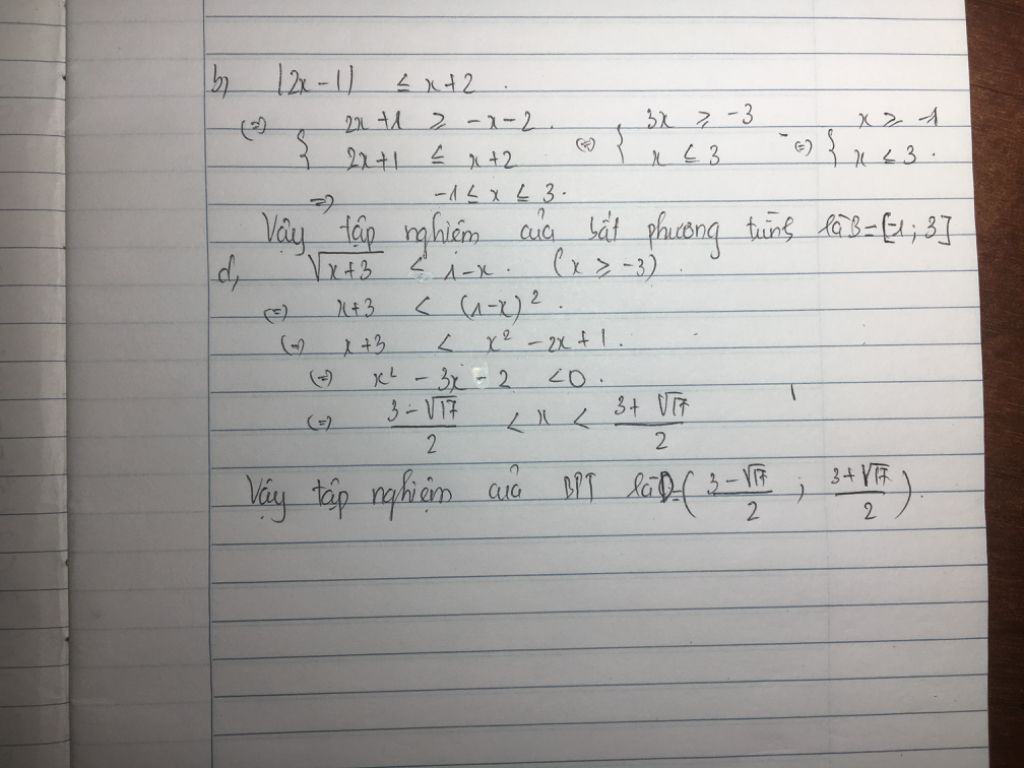 b, |2x-1| ≤ x+2.
(=) { 2x+1 ≥ -x-2. (=) { 3x ≥ -3 (=) { x ≥ -1
2x+1 ≤ x+2 x ≤ 3 x ≤ 3.
=) -1 ≤ x ≤ 3.
Vậy tập nghiệm của bất phương là S=[-1; 3]
d, √x+3 < 1-x. (x ≥ -3)
(=) x+3 < (1-x)².
(=) x+3 < x² - 2x + 1.
(=) x² - 3x - 2 < 0.
(=) (3-√17)/2 < x < (3+√17)/2
Vậy tập nghiệm của BPT là D=((3-√17)/2 ; (3+√17)/2).